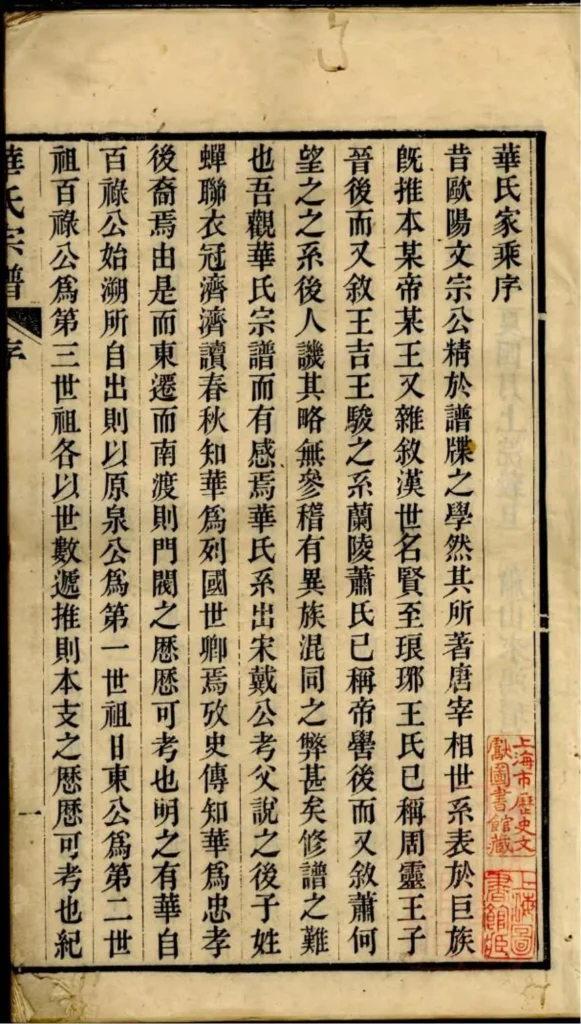 華氏家乘序
昔歐陽文宗公精於譜牒之學然其所著唐宰相世系表於巨族
旣推本某帝某王又雜敘漢世名賢至琅琊王氏已稱周靈王子
晉後而又敘王吉王駿之系蘭陵蕭氏已稱帝嚳後而又敘蕭何
望之之系後人譏其略無參稽有異族混同之弊甚矣修譜之難
也吾觀華氏宗譜而有感焉華氏系出宋戴公考父說之後子姓
蟬聯衣冠濟濟讀春秋知華爲列國世卿焉攷史傳知華爲忠孝
後裔焉由是而東遷而南渡則門閥之歷歷可考也明之有華自
百祿公始溯所自出則以原泉公爲第一世祖日東公爲第二世
祖百祿公爲第三世祖各以世數遞推則本支之歷歷可考也紀
華氏宗譜
序
一
上海市歷史文
獻圖書館藏
上海圖
書館藏